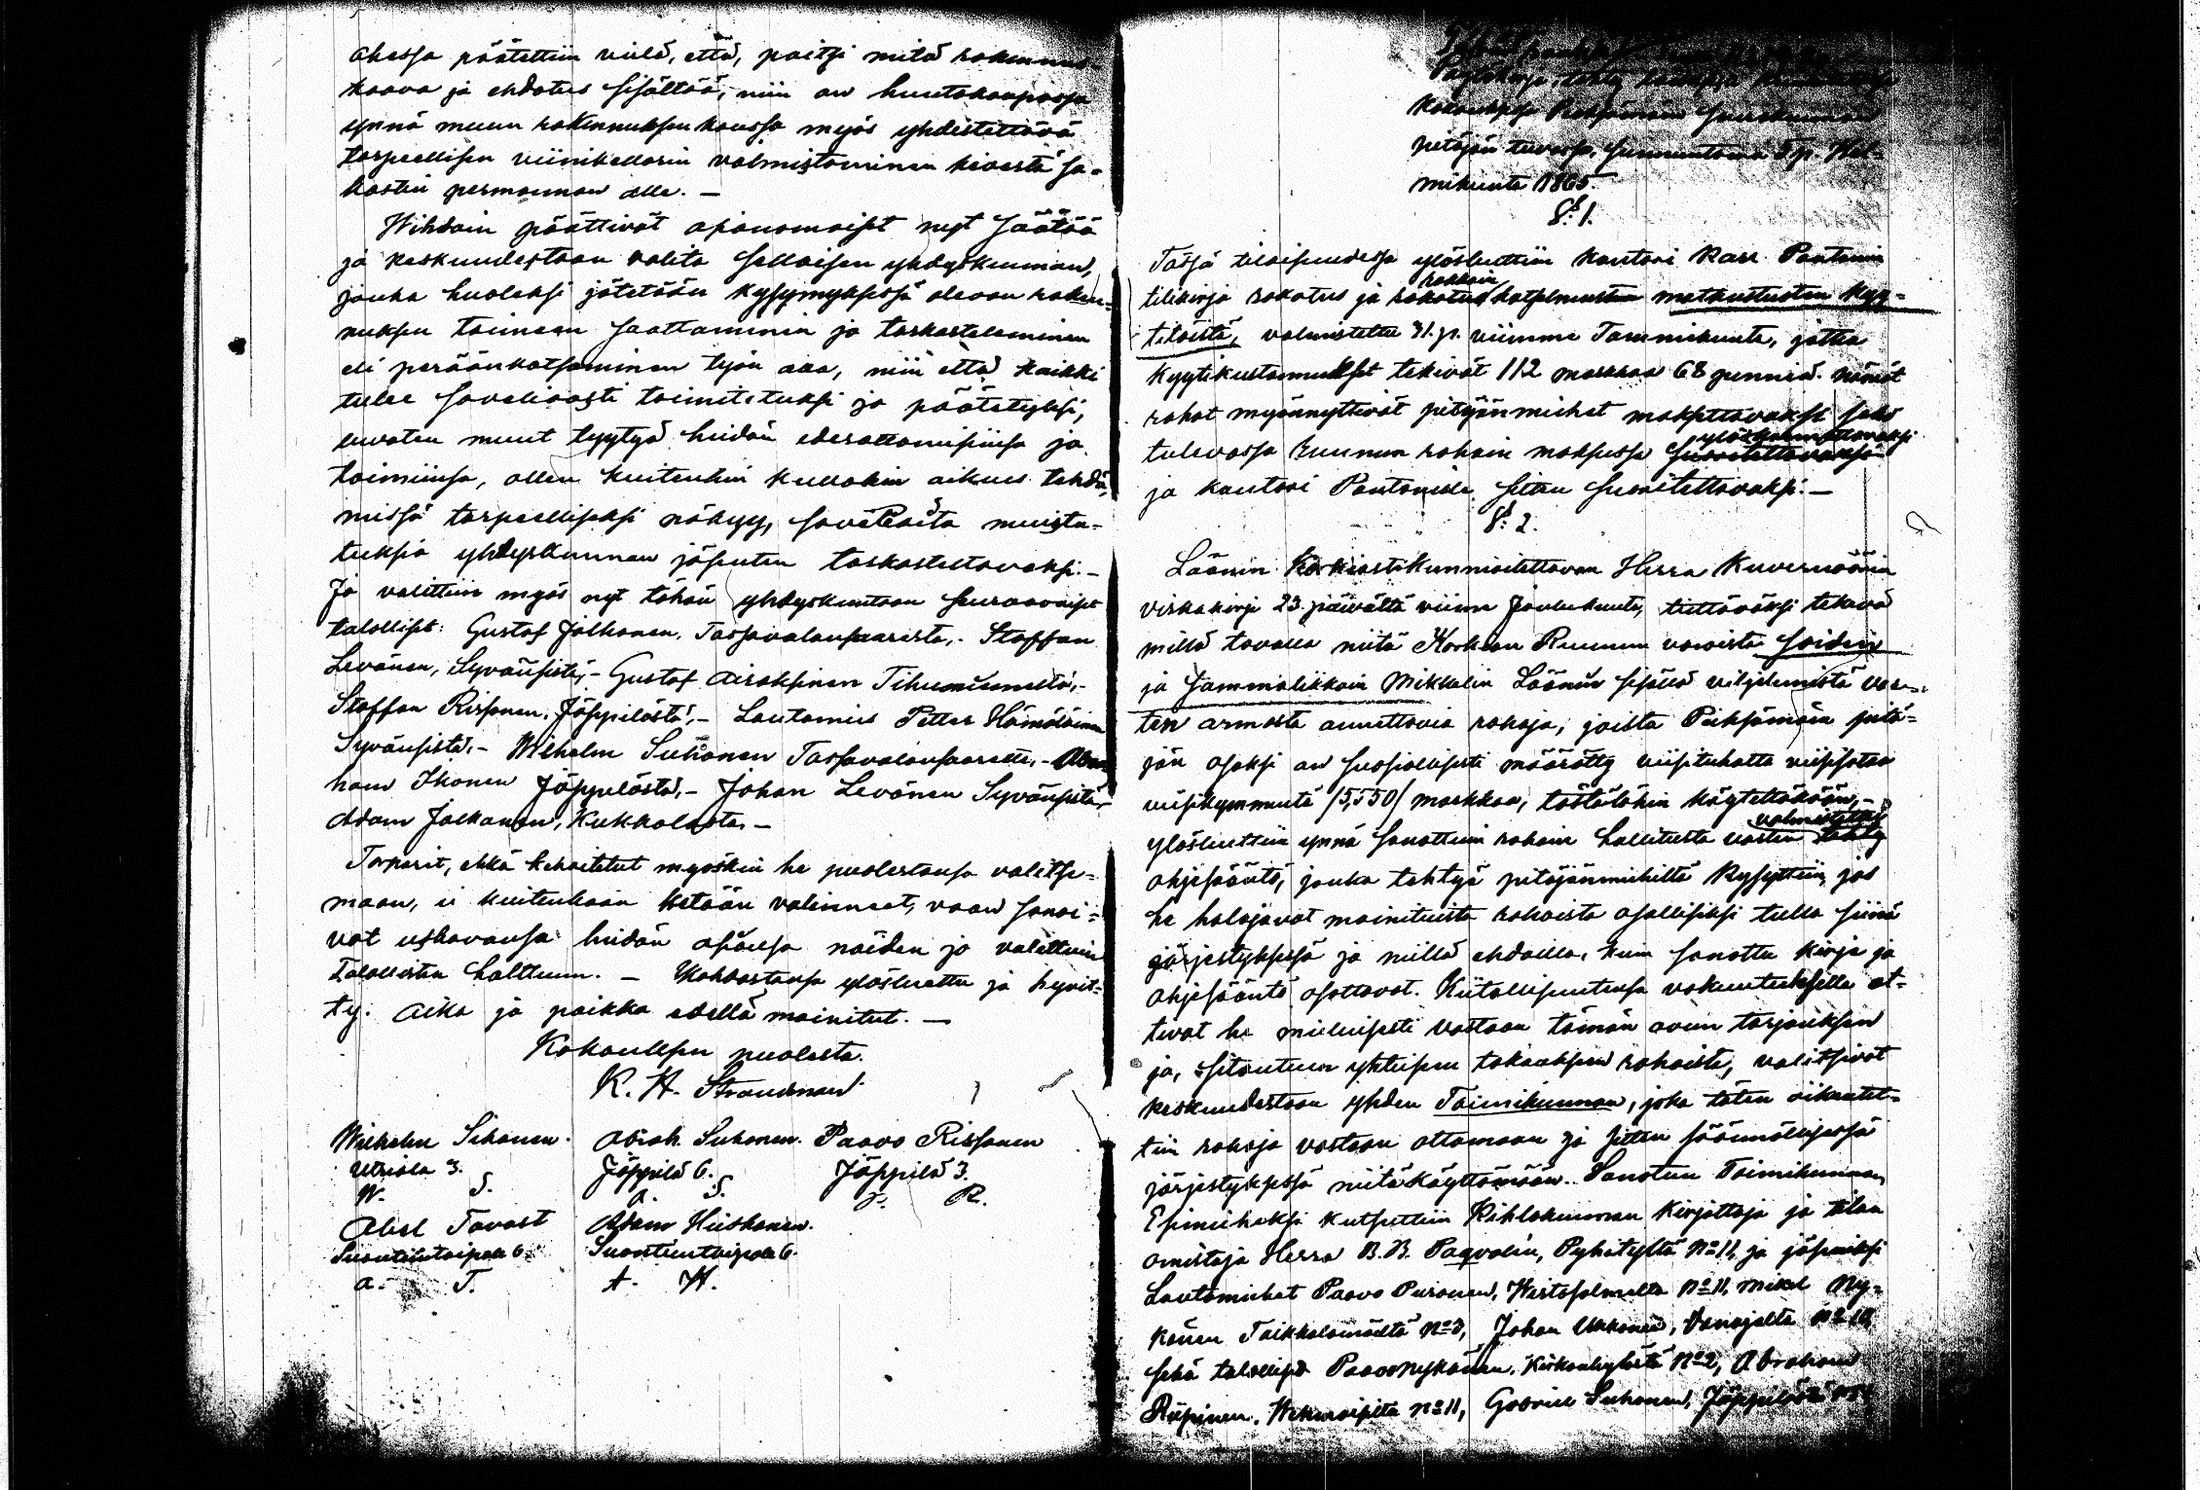 ohessa päätettiin vielä, että, paitsi mitä rakennus-
kaava ja ehdotus sisältää, niin on huutokaupassa
ynnä muun rakennuksen kanssa myös yhdistettävä
tarpeellisen viinikellarin valmistaminen kivestä sa-
kastin permannon alle. —
Wihdoin päättivät asianomaiset nyt säätää
ja keskuudestaan valita sellaisen yhdyskunnan,
jonka huoleksi jätetään kysymyksessä olevan raken-
nuksen toimeen saattaminen ja tarkasteleminen
eli peräänkatsominen työn alla, niin että kaikki
tulee soveliaasti toimitetuksi ja päätetyksi,
luvaten muut tyytyä heidän edesottamisiinsa ja
toimiinsa, ollen kuitenkin kullakin oikeus tehdä,
missä tarpeelliseksi näkyy, soveliaita muistu-
tuksia yhdyskunnan jäsenten tarkasteltavaksi. —
Ja valittiin myös nyt tähän yhdyskuntaan seuraavaiset
talolliset: Gustaf Jalkanen, Tassavalansaaresta, - Staffan
Levänen, Syvänsistä, - Gustaf Airaksinen Tihusniemeltä, -
Staffan Rissanen, Jäppilästä, - Lautamies Petter Hämäläinen
Syvänsistä, - Wilhelm Suhonen Tassavalansaarelta, - Abra-
ham Ikonen Jäppilästä, - Johan Levänen Syvänsistä, -
Adam Jalkanen, Kukkolasta. —
Torparit, ehkä kehoitetut myöskin he puolestansa valitse-
maan, ei kuitenkaan ketään valinneet, vaan sanoi-
vat uskovansa heidän asiansa näiden jo valittuin
Talollisten haltuun. — Kohdastansa ylösluettu ja hyväksyt-
ty. Aika ja paikka edellä mainitut. —
Kokouksen puolesta.
K. H. Strandman
Wilhelm Sihonen. Abrah. Suhonen. Paavo Rissanen
Utriala 3. Jäppilä 6. Jäppilä 3.
W. S. A. S. P. R.
Abel Tavast Adam Hiiskonen.
Suontientaipale 6. Suontientaipale 6.
A. T. A. H.
Pöytäkirja, tehty
kokouksessa Pieksämäen Seurakunnan
pitäjän tuvassa, sunnuntaina 5 p. Hel-
mikuuta 1865.
§. 1.
Tässä tilaisuudessa ylösluettiin kanttori Karl Pantenin
rokkoin
tilikirja rokotus ja rokotus katselmusten matkustusten kyy-
titöistä, valmistettu 31. p. viimme Tammikuuta, jotka
kyytikustannukset tekivät 112 markkaa 68 penniä. Nämät
rahat myönnyttivät pitäjänmiehet maksettavaksi sekä
ylöskannettavaksi
tulevassa ruunun rahain maksussa suoritettavaksi
ja kanttori Pantenille sitten suoritettavaksi. —
§. 2.
Läänin Korkiastikunnioitettavan Herra Kuvernöörin
virkakirja 23. päivältä viime Joulukuuta, tiettäväksi tekevä
millä tavalla niitä Korkean Ruunun varoista soiden
ja sammalikkoin Mikkelin Läänin sisällä viljelemistä var-
ten armosta annettavia rahoja, joista Pieksämäen pitä-
jän osaksi on suosiollisesti määrätty viisituhatta viisisataa
viisikymmentä /5,550/ markkaa, tästälähin käytettäköön, -
valmistettu
ylösluettiin ynnä sanottuin rahain hallitusta varten tehty
ohjesääntö, jonka tehtyä pitäjänmiehiltä kysyttiin, jos
he halajavat mainituista rahoista osalliseksi tulla siinä
järjestyksessä ja niillä ehdoilla, kuin sanottu kirja ja
ohjesääntö osottavat. Kiitollisuutensa vakuutuksella ot-
tivat he mieluisesti vastaan tämän avun tarjouksen
ja, sitoutuen yhteiseen takaukseen rahoista, valitsivat
keskuudestaan yhden Toimikunnan, joka täten oikeutet-
tiin rahoja vastaan ottamaan ja sitten säännöllisessä
järjestyksessä niitä käyttämään. Sanotun Toimikunnan
Esimieheksi kutsuttiin Kihlakunnan Kirjottaja ja tilan
omistaja Herra B. B. Paqvalin, Pyhityltä No 11, ja jäseniksi
Lautamiehet Paavo Puronen, Wirtasalmelta No 11, Mikel Ny-
känen Toikkalamäeltä No 3, Johan Ukkonen, Vanajalta No 10,
sekä talolliset Paavo Nykänen, Kirkonkylästä No 2, Abraham
Riipinen, No 11, Gabriel Suhonen, Jäppilästä